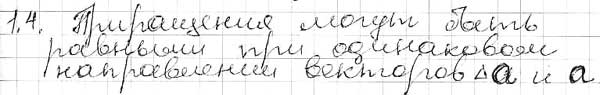 1.4. Приращения могут быть
равными при одинаковом
направлении векторов Δa и a